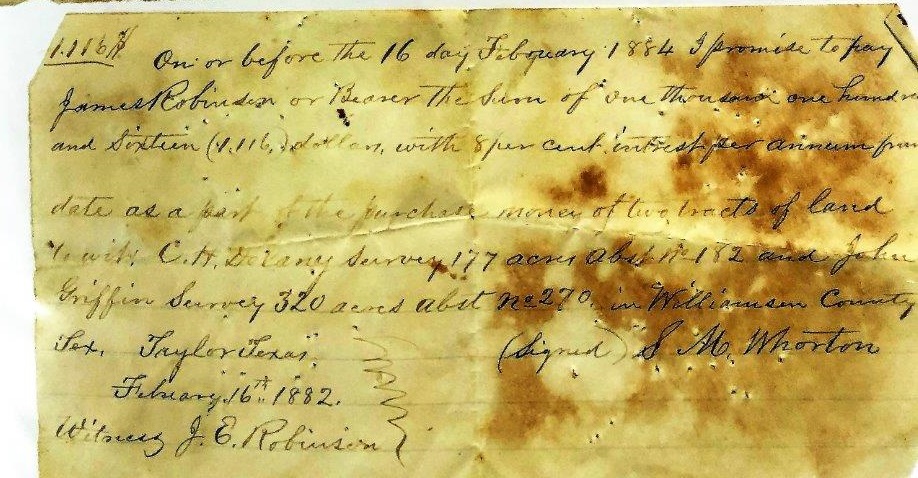 1.116$ On or before the 16 day Febouary 1884 I promise to pay
James Robinson or Bearer the Sum of one thousand one hundr
and Sixtein (1.116.) dollars, with 8 per cent intrest per annum from
date as a part of the purchase money of two tracts of land
to wit. C.H. Delany Survey 177 acres Abst No 182 and John
Griffin Survey 320 acres abst No 270. in Williamson County
Tex. Taylor Texas (Signed) S. M. Whorton
Febuary 16th. 1882.
Witness J. E. Robinson